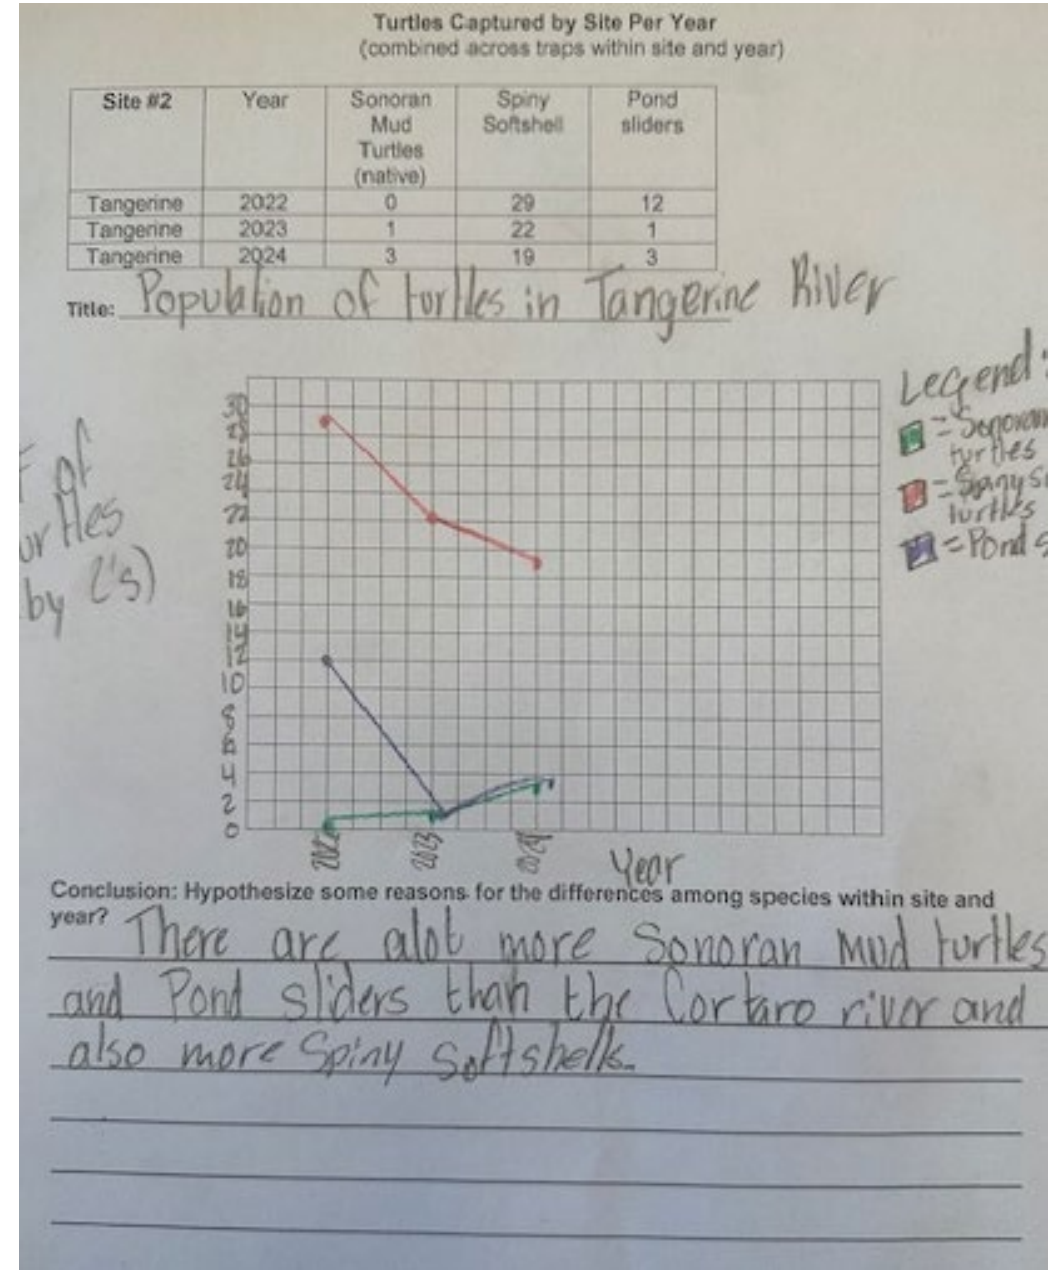 Turtles Captured by Site Per Year
(combined across traps within site and year)
Site #2 Year Sonoran Mud Turtles (native) Spiny Softshell Pond sliders
Tangerine 2022 0 29 12
Tangerine 2023 1 22 1
Tangerine 2024 3 19 3
Title: Population of turtles in Tangerine River
Legend:
= Sonoran
turtles
= Spiny
turtles
= Pond
of
by 2's)
30
26
24
22
20
18
16
14
12
10
8
6
4
2
0
2022 2023 2024 Year
Conclusion: Hypothesize some reasons for the differences among species within site and
year? There are alot more Sonoran Mud turtles
and Pond sliders than the Cortaro river and
also more Spiny Softshells.